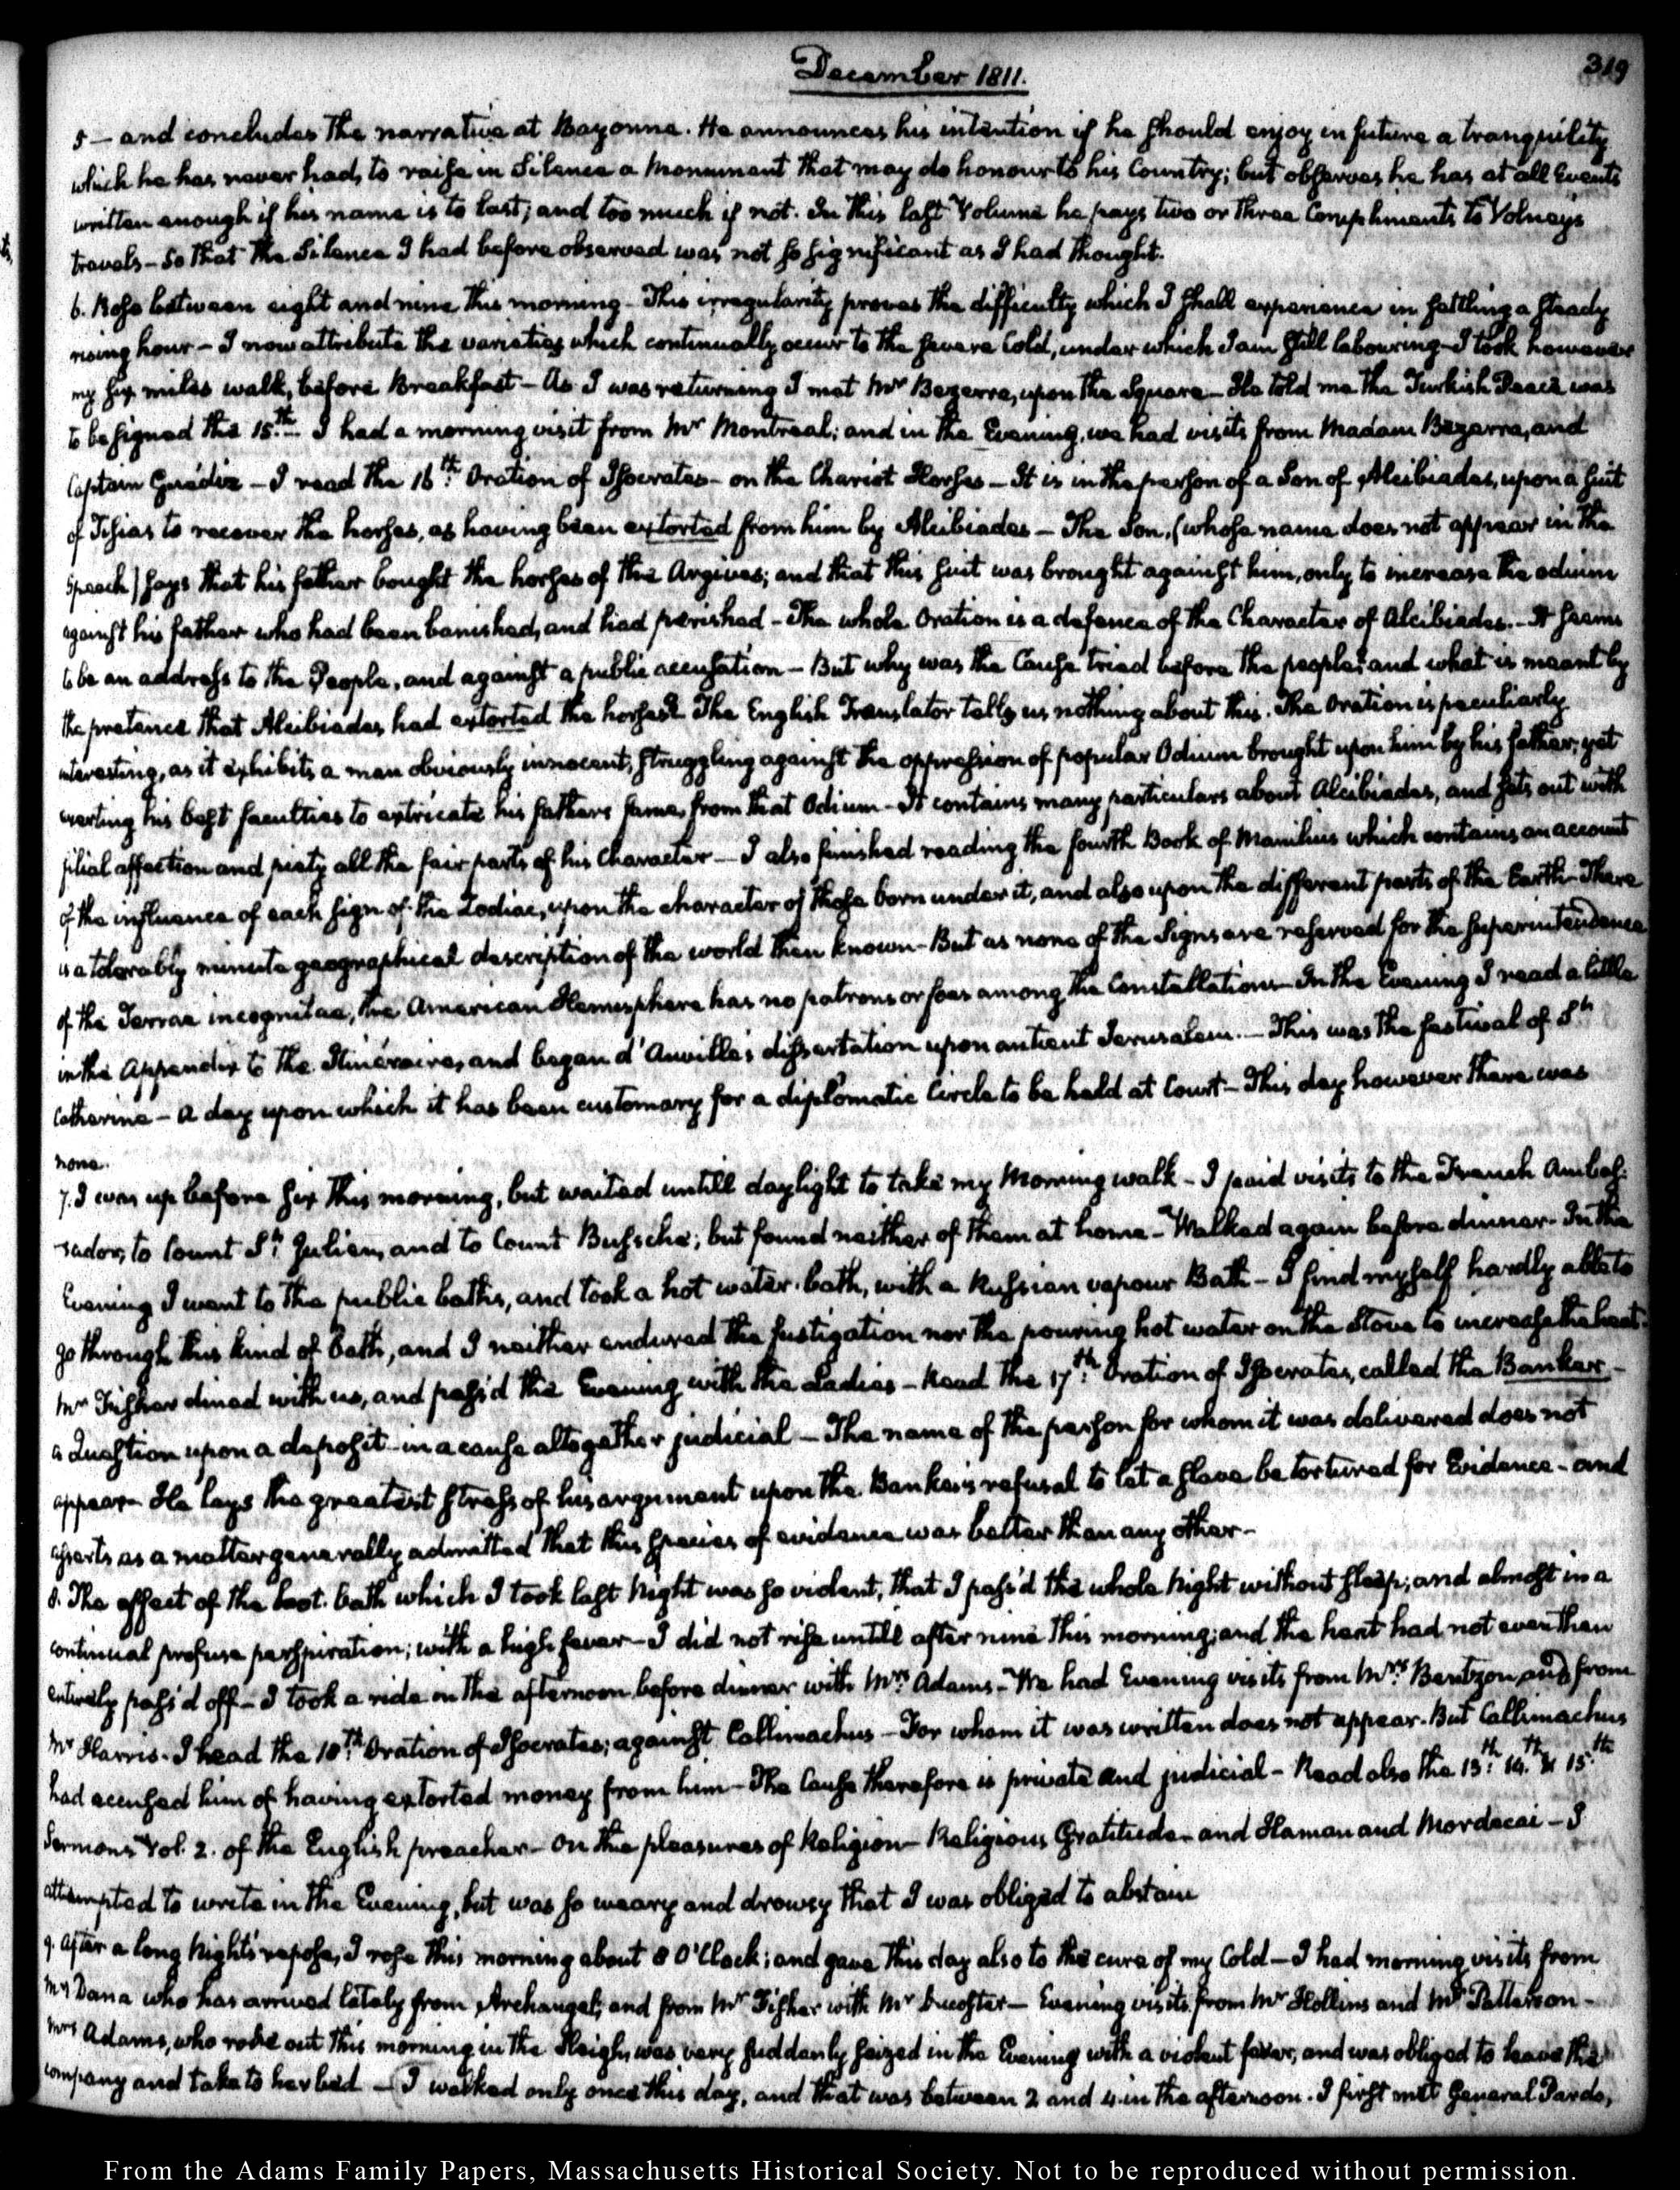 December 1811.
319
5 — and concludes the narrative at Bayonne. He announces his intention if he should enjoy in future a tranquility
which he has never had, to raise in Silence a Monument that may do honour to his Country; but observes he has at all Events
written enough if his name is to last; and too much if not. In this last Volume he pays two or three Compliments to Volney's
travels — So that the Silence I had before observed was not so significant as I had thought.
6. Rose between eight and nine this morning — This irregularity proves the difficulty which I shall experience in settling a steady
rising hour — I now attribute the varieties which continually occur to the severe Cold, under which I am still labouring — I took however
my six miles walk, before Breakfast — As I was returning I met Mr Bezerra, upon the Square — He told me the Turkish Peace was
to be signed the 15th. I had a morning visit from Mr Montreal; and in the Evening, we had visits from Madam Bezerra, and
Captain Guédiz — I read the 16th. Oration of Isocrates — on the Chariot Horses — It is in the person of a Son of Alcibiades, upon a suit
of Tisias to recover the horses, as having been extorted from him by Alcibiades — The Son, (whose name does not appear in the
Speech) says that his father bought the horses of the Argives; and that this suit was brought against him, only to increase the odium
against his father who had been banished, and had perished — The whole Oration is a defence of the Character of Alcibiades. — It seems
to be an address to the People, and against a public accusation — But why was the Cause tried before the people? and what is meant by
the pretence that Alcibiades had extorted the horses? The English Translator tells us nothing about this. The Oration is peculiarly
interesting, as it exhibits a man obviously innocent, struggling against the oppression of popular Odium brought upon him by his father; yet
exerting his best faculties to extricate his fathers fame, from that Odium — It contains many particulars about Alcibiades, and sets out with
filial affection and piety all the fair parts of his Character — I also finished reading the fourth Book of Manilius which contains an account
of the influence of each sign of the Zodiac, upon the character of those born under it, and also upon the different parts of the Earth — There
is a tolerably minute geographical description of the world then known — But as none of the Signs are reserved for the superintendence
of the Terrae incognitae, the American Hemisphere has no patrons or foes among the Constellations — In the Evening I read a little
in the Appendix to the Itinéraire, and began d'Anville's dissertation upon antient Jerusalem. — This was the festival of St.
Catherine — a day upon which it has been customary for a diplomatic Circle to be held at Court — This day however there was
none.
7. I was up before six this morning, but waited untill daylight to take my Morning walk — I paid visits to the French Ambas-
sador, to Count St. Julien, and to Count Bussche; but found neither of them at home — Walked again before dinner — In the
Evening I went to the public baths, and took a hot water bath, with a Russian vapour Bath — I find myself hardly able to
go through this kind of bath, and I neither endured the fustigation nor the pouring hot water on the stove to increase the heat.
Mr Fisher dined with us, and pass'd the Evening with the Ladies — Read the 17th. Oration of Isocrates, called the Banker —
a Question upon a deposit — in a cause altogether judicial — The name of the person for whom it was delivered does not
appear — He lays the greatest stress of his argument upon the Banker's refusal to let a slave be tortured for Evidence — and
asserts as a matter generally admitted that this species of evidence was better than any other —
8. The effect of the hot bath which I took last Night was so violent, that I pass'd the whole Night without sleep; and almost in a
continual profuse perspiration; with a high fever — I did not rise untill after nine this morning; and the heat had not even then
entirely pass'd off — I took a ride in the afternoon before dinner with Mrs. Adams — We had Evening visits from Mrs. Bentzon and from
Mr Harris. I read the 18th. Oration of Isocrates; against Callimachus — For whom it was written does not appear. But Callimachus
had accused him of having extorted money from him — The Cause therefore is private and judicial — Read also the 13th. 14th. & 15th.
Sermons Vol. 2. of the English preacher — On the pleasures of Religion — Religious Gratitude — and Haman and Mordecai — I
attempted to write in the Evening, but was so weary and drowsy that I was obliged to abstain
9. After a long Night's repose, I rose this morning about 8 O'Clock; and gave this day also to the cure of my Cold — I had morning visits from
Mr Dana who has arrived lately from Archangel; and from Mr Fisher with Mr — Evening visits from Mr Hollins and Mr Patterson —
Mrs Adams, who rode out this morning in the Sleigh, was very suddenly seized in the Evening with a violent fever, and was obliged to leave the
company and take to her bed — I walked only once this day, and that was between 2 and 4 in the afternoon. I first met General Pardo,
From the Adams Family Papers, Massachusetts Historical Society. Not to be reproduced without permission.